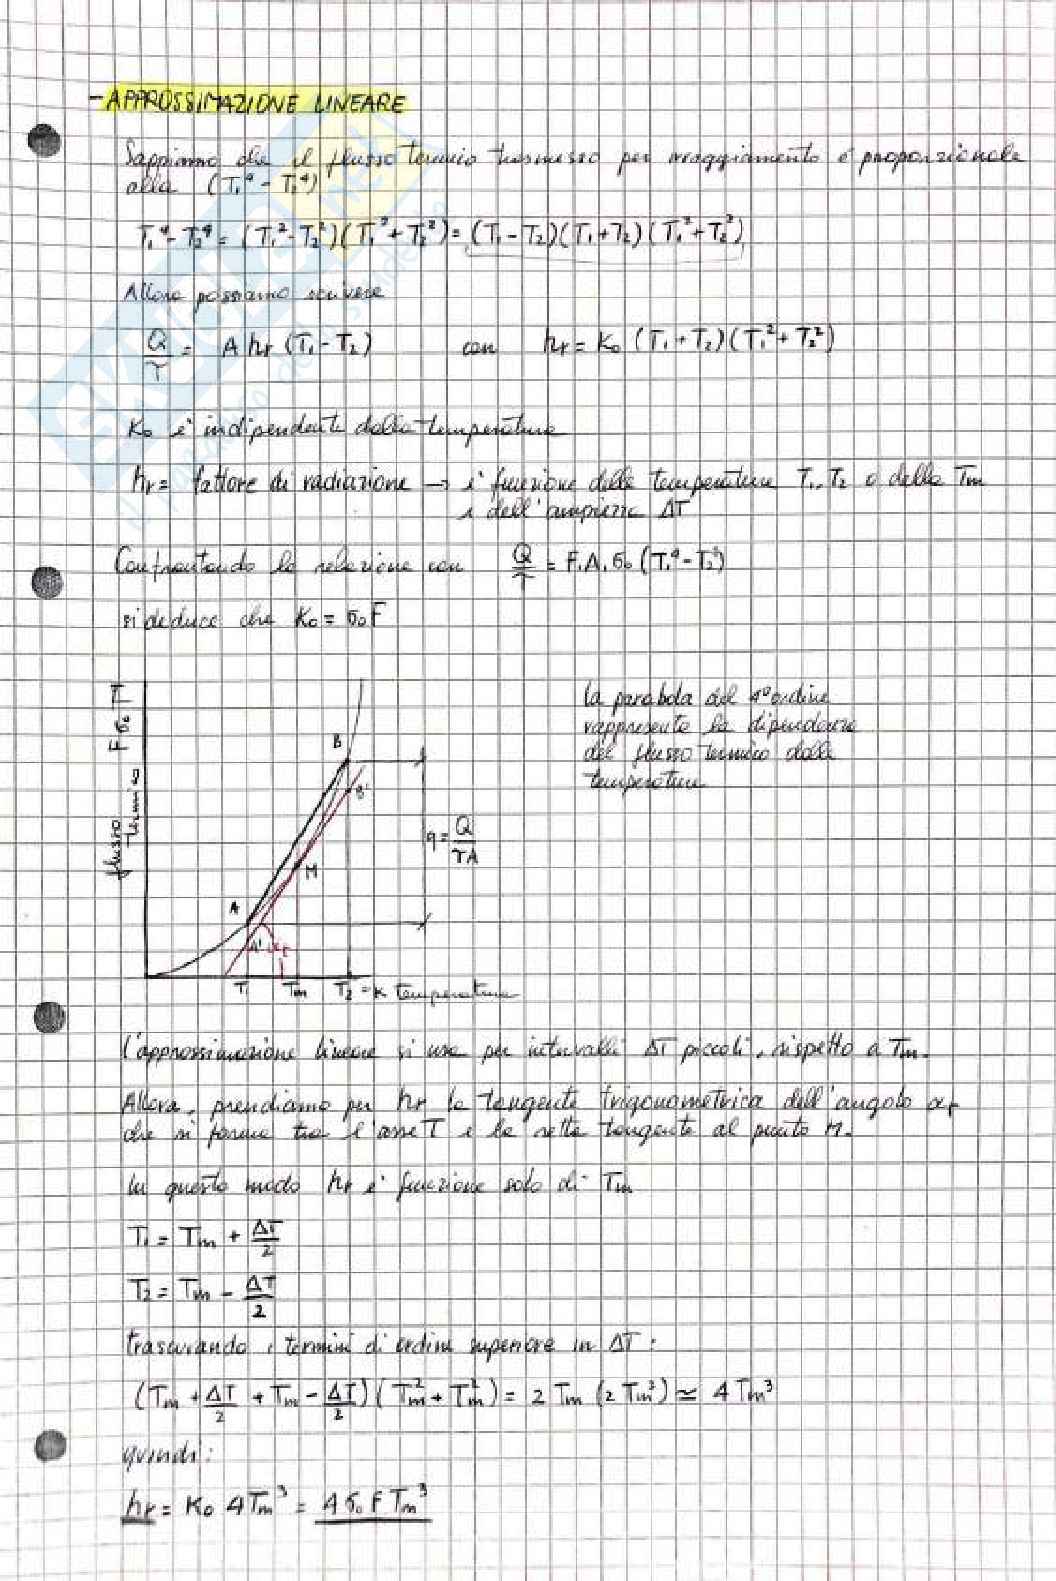 - APPROSSIMAZIONE LINEARE
Sappiamo che il flusso termico trasmesso per irraggiamento è proporzionale
alla (T₁⁴ - T₂⁴)
T₁⁴ - T₂⁴ = (T₁² - T₂²)(T₁² + T₂²) = (T₁ - T₂)(T₁ + T₂)(T₁² + T₂²)
Allora possiamo scrivere
Q/τ = A hr (T₁ - T₂) con hr = K₀ (T₁ + T₂)(T₁² + T₂²)
K₀ è indipendente dalla temperatura
hr = fattore di radiazione → è funzione delle temperature T₁, T₂ o della Tm
e dell'ampiezza ΔT
Confrontando la relazione con Q/τ = F₁A₁σ₀ (T₁⁴ - T₂⁴)
si deduce che K₀ = σ₀F
flusso termico Fσ₀T
B
B'
M
A
A'
αr
q = Q/τA
T₁ Tm T₂ = K temperatura
la parabola del 4° ordine
rappresenta la dipendenza
del flusso termico dalla
temperatura
L'approssimazione lineare si usa per intervalli ΔT piccoli, rispetto a Tm.
Allora, prendiamo per hr la tangente trigonometrica dell'angolo αr
che si forma tra l'asse T e la retta tangente al punto M.
In questo modo hr è funzione solo di Tm
T₁ = Tm + ΔT/2
T₂ = Tm - ΔT/2
trascurando i termini di ordine superiore in ΔT:
(Tm + ΔT/2 + Tm - ΔT/2)(Tm² + Tm²) = 2 Tm (2 Tm²) ≃ 4 Tm³
quindi:
hr = K₀ 4Tm³ = 4σ₀ F Tm³